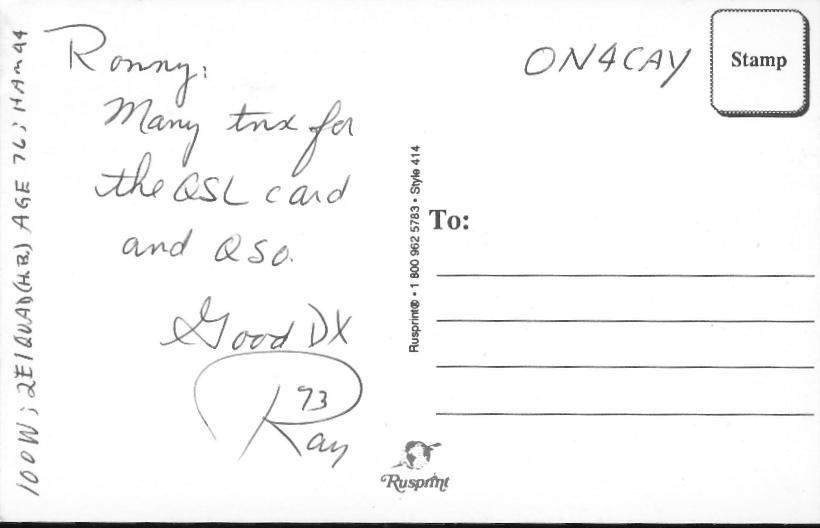 Ronny,
Many tnx for
the QSL card
and QSO.
Good DX
73
Ray
100W; 2El QUAD (H.B.) AGE 76; HAM 44
ON4CAY
Stamp
To:
Rusprint® • 1 800 962 5783 • Style 414
Rusprint